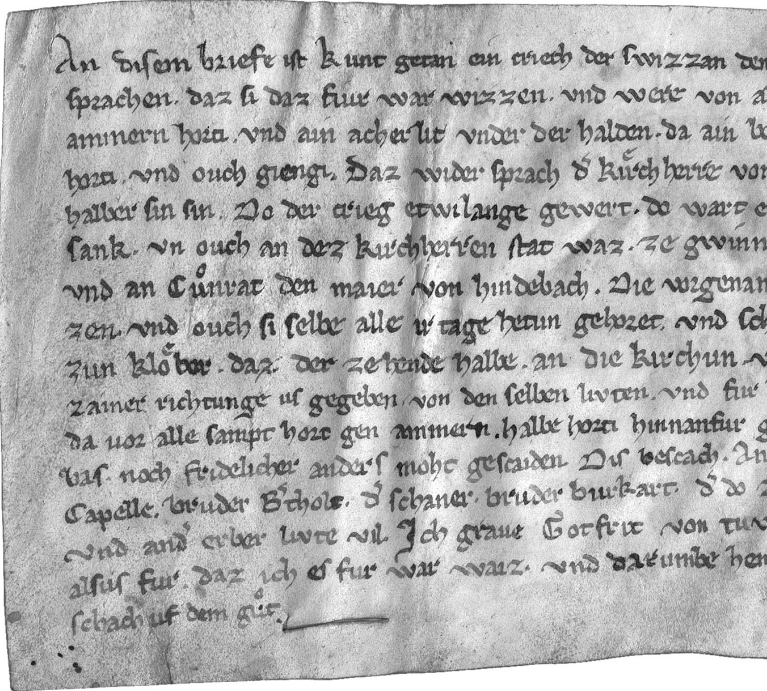 An disem briefe ist kunt getan ein criech der swizzan den
sprachen. daz si daz fiur war wizzen. vnd were von a
ammern horti. vnd ain acher lit vnder der halden. da ain bo
horti. vnd ouch giengi. Daz wider sprach d͛ kůrchherre von
halber sin sin. Do der crieg etwilange gewert. do wart e
sank. vn ouch an dez kirchherren stat waz. ze gwinn
vnd an Cůnrat den maier von hindebach. Die vorgenan
zen. vnd ouch si selbe alle ir tage hetun gehoret. vnd sch
zun klober. daz. der zehende halbe. an die kirchun. v
zainer richtunge us gegeben. von den selben livten. vnd fur
da vor alle sampt hort gen ammern. halbe horti hinnanfur g
bas. noch fridelicher anders moht gescaiden. Dis bescach. An
Capelle. bruder B͛tholt. d͛ schaner. bruder burkart. d͛ do
vnd and͛ erber livte vil. Ich graue Gotfrit von tuv
alsus fur. daz ich es fur war waiz. vnd darumbe hen
schach uf dem gůt.